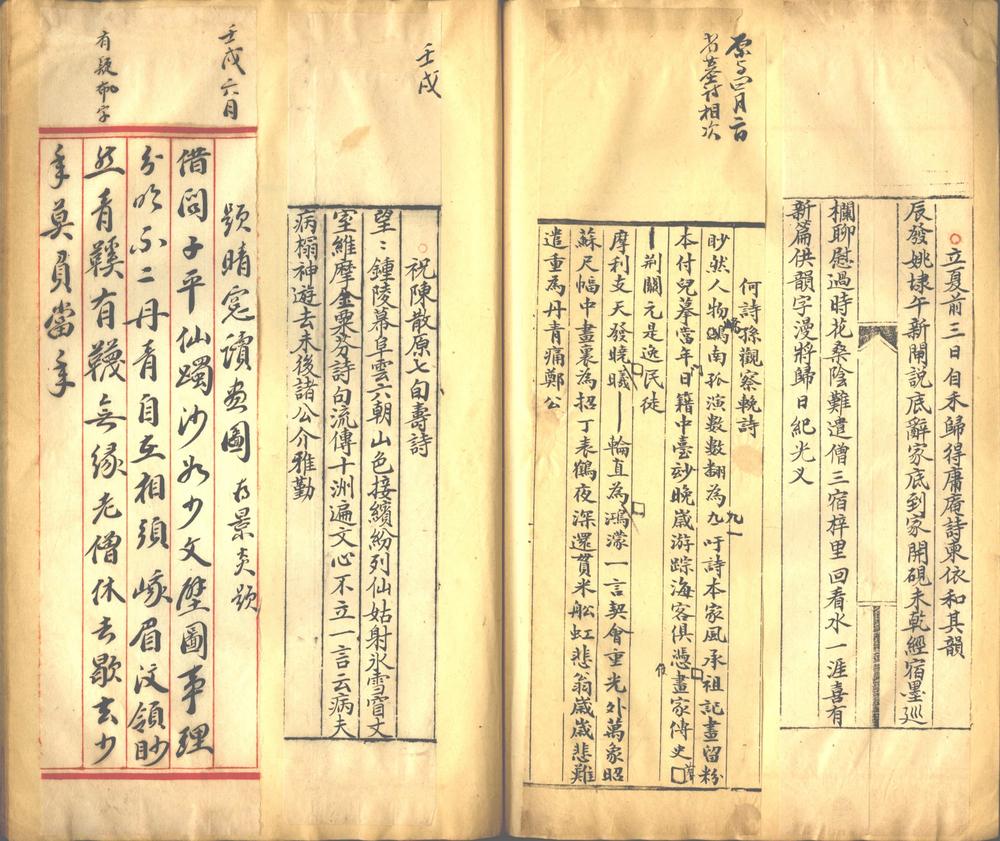 立夏前三日自禾歸得庸庵詩柬依和其韻
辰發姚埭午新閘説底辭家底到家開硯未乾經宿墨巡
欄聊慰過時花桑陰難遣僧三宿梓里回看水一涯喜有
新篇供韻字漫將歸日紀光叉
相次
何詩孫觀察輓詩
眇然人物嶋南孤演數數翻為九吁詩本家風承祖記畫留粉
本付兒摹當年日籍中臺妙晚歲游踪海客俱憑畫家傳史
荆關元是逸民徒
摩利支天發曉曦一輪直為鴻濛一言契會重光外萬象昭
蘇尺幅中畫裏為招丁表鶴夜深還貫米船虹悲翁歲歲悲難
遣重為丹青痛鄭公
壬戌
祝陳散原七旬壽詩
望〻鍾陵幕阜雲六朝山色接繽紛列仙姑射氷雪胷丈
室維摩金粟芬詩句流傳十洲遍文心不立一言云病夫
病榻神遊去未後諸公介雅勤
壬戌六月
題晴窓讀畫圖 為景炎題
借問子平仙躅沙如少文壁圖事理
分明不二丹青自互相須峨眉汶領眇
然青鞵有韈無緣老僧休去歇去少
年莫負當年
有疑